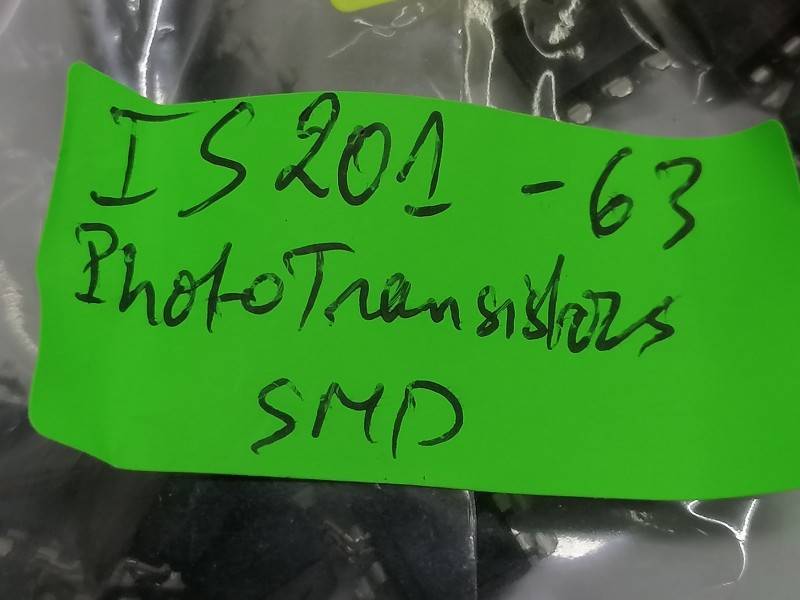 IS201 - 63
PhotoTransistors
SMD